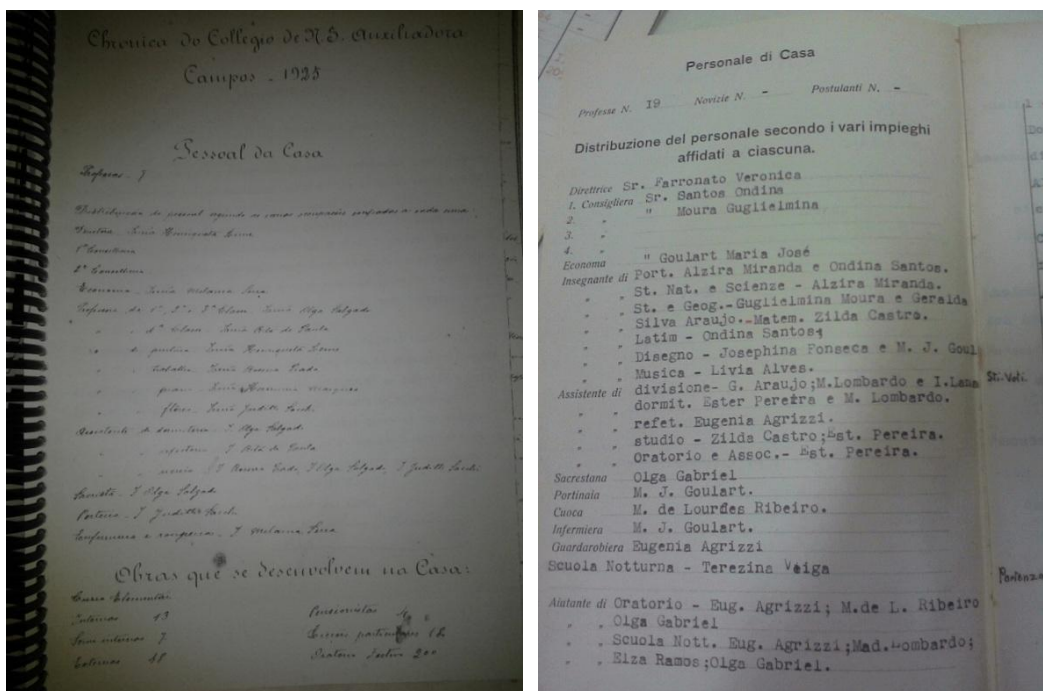 Chronica do Collegio de N. S. Auxiliadora
Campos - 1925
Pessoal da Casa
Professas - 7
Distribuição do pessoal segundo as varias occupações confiadas a cada uma.
1ª Conselheira
2ª Conselheira
Economa - Irmã Melania
Irmã Olga Salgado
4ª Classe Irmã Rita de Paula
de pintura Irmã Henriqueta
flores Irmã Judith
Assistente de dormitorio I Olga Salgado
refeitorio I Rita de Paula
I Olga Salgado, I Judith
Sacristã - I Olga Salgado
Porteira - I Judith
Enfermeira e roupeira - I Melania
Obras que se desenvolvem na Casa:
Curso Elementar
Internas 43
Semi internas 7
Externas 48
Pensionistas
Cursos particulares
Oratorio festivo 200
Personale di Casa
Professe N. 19 Novizie N. - Postulanti N. -
Distribuzione del personale secondo i vari impieghi
affidati a ciascuna.
Direttrice Sr. Farronato Veronica
1. Consigliera Sr. Santos Ondina
2. " " Moura Guglielmina
3. "
4. "
Economa " Goulart Maria José
Insegnante di Port. Alzira Miranda e Ondina Santos.
" " St. Nat. e Scienze - Alzira Miranda.
" " St. e Geog.-Guglielmina Moura e Geralda
" " Silva Araujo.-Matem. Zilda Castro.
" " Latim - Ondina Santos;
" " Disegno - Josephina Fonseca e M. J. Goul
" " Musica - Livia Alves.
Assistente di divisione- G. Araujo;M.Lombardo e I.Lana
" " dormit. Ester Pereira e M. Lombardo.
" " refet. Eugenia Agrizzi.
" " studio - Zilda Castro;Est. Pereira.
" " Oratorio e Assoc.- Est. Pereira.
Sacrestana Olga Gabriel
Portinaia M. J. Goulart.
Cuoca M. de Lourdes Ribeiro.
Infermiera M. J. Goulart.
Guardarobiera Eugenia Agrizzi
Scuola Notturna - Terezina Veiga
Aiutante di Oratorio - Eug. Agrizzi; M.de L. Ribeiro
" " Olga Gabriel
" " Scuola Nott. Eug. Agrizzi;Mad.Lombardo;
" " Elza Ramos;Olga Gabriel.
Partenza